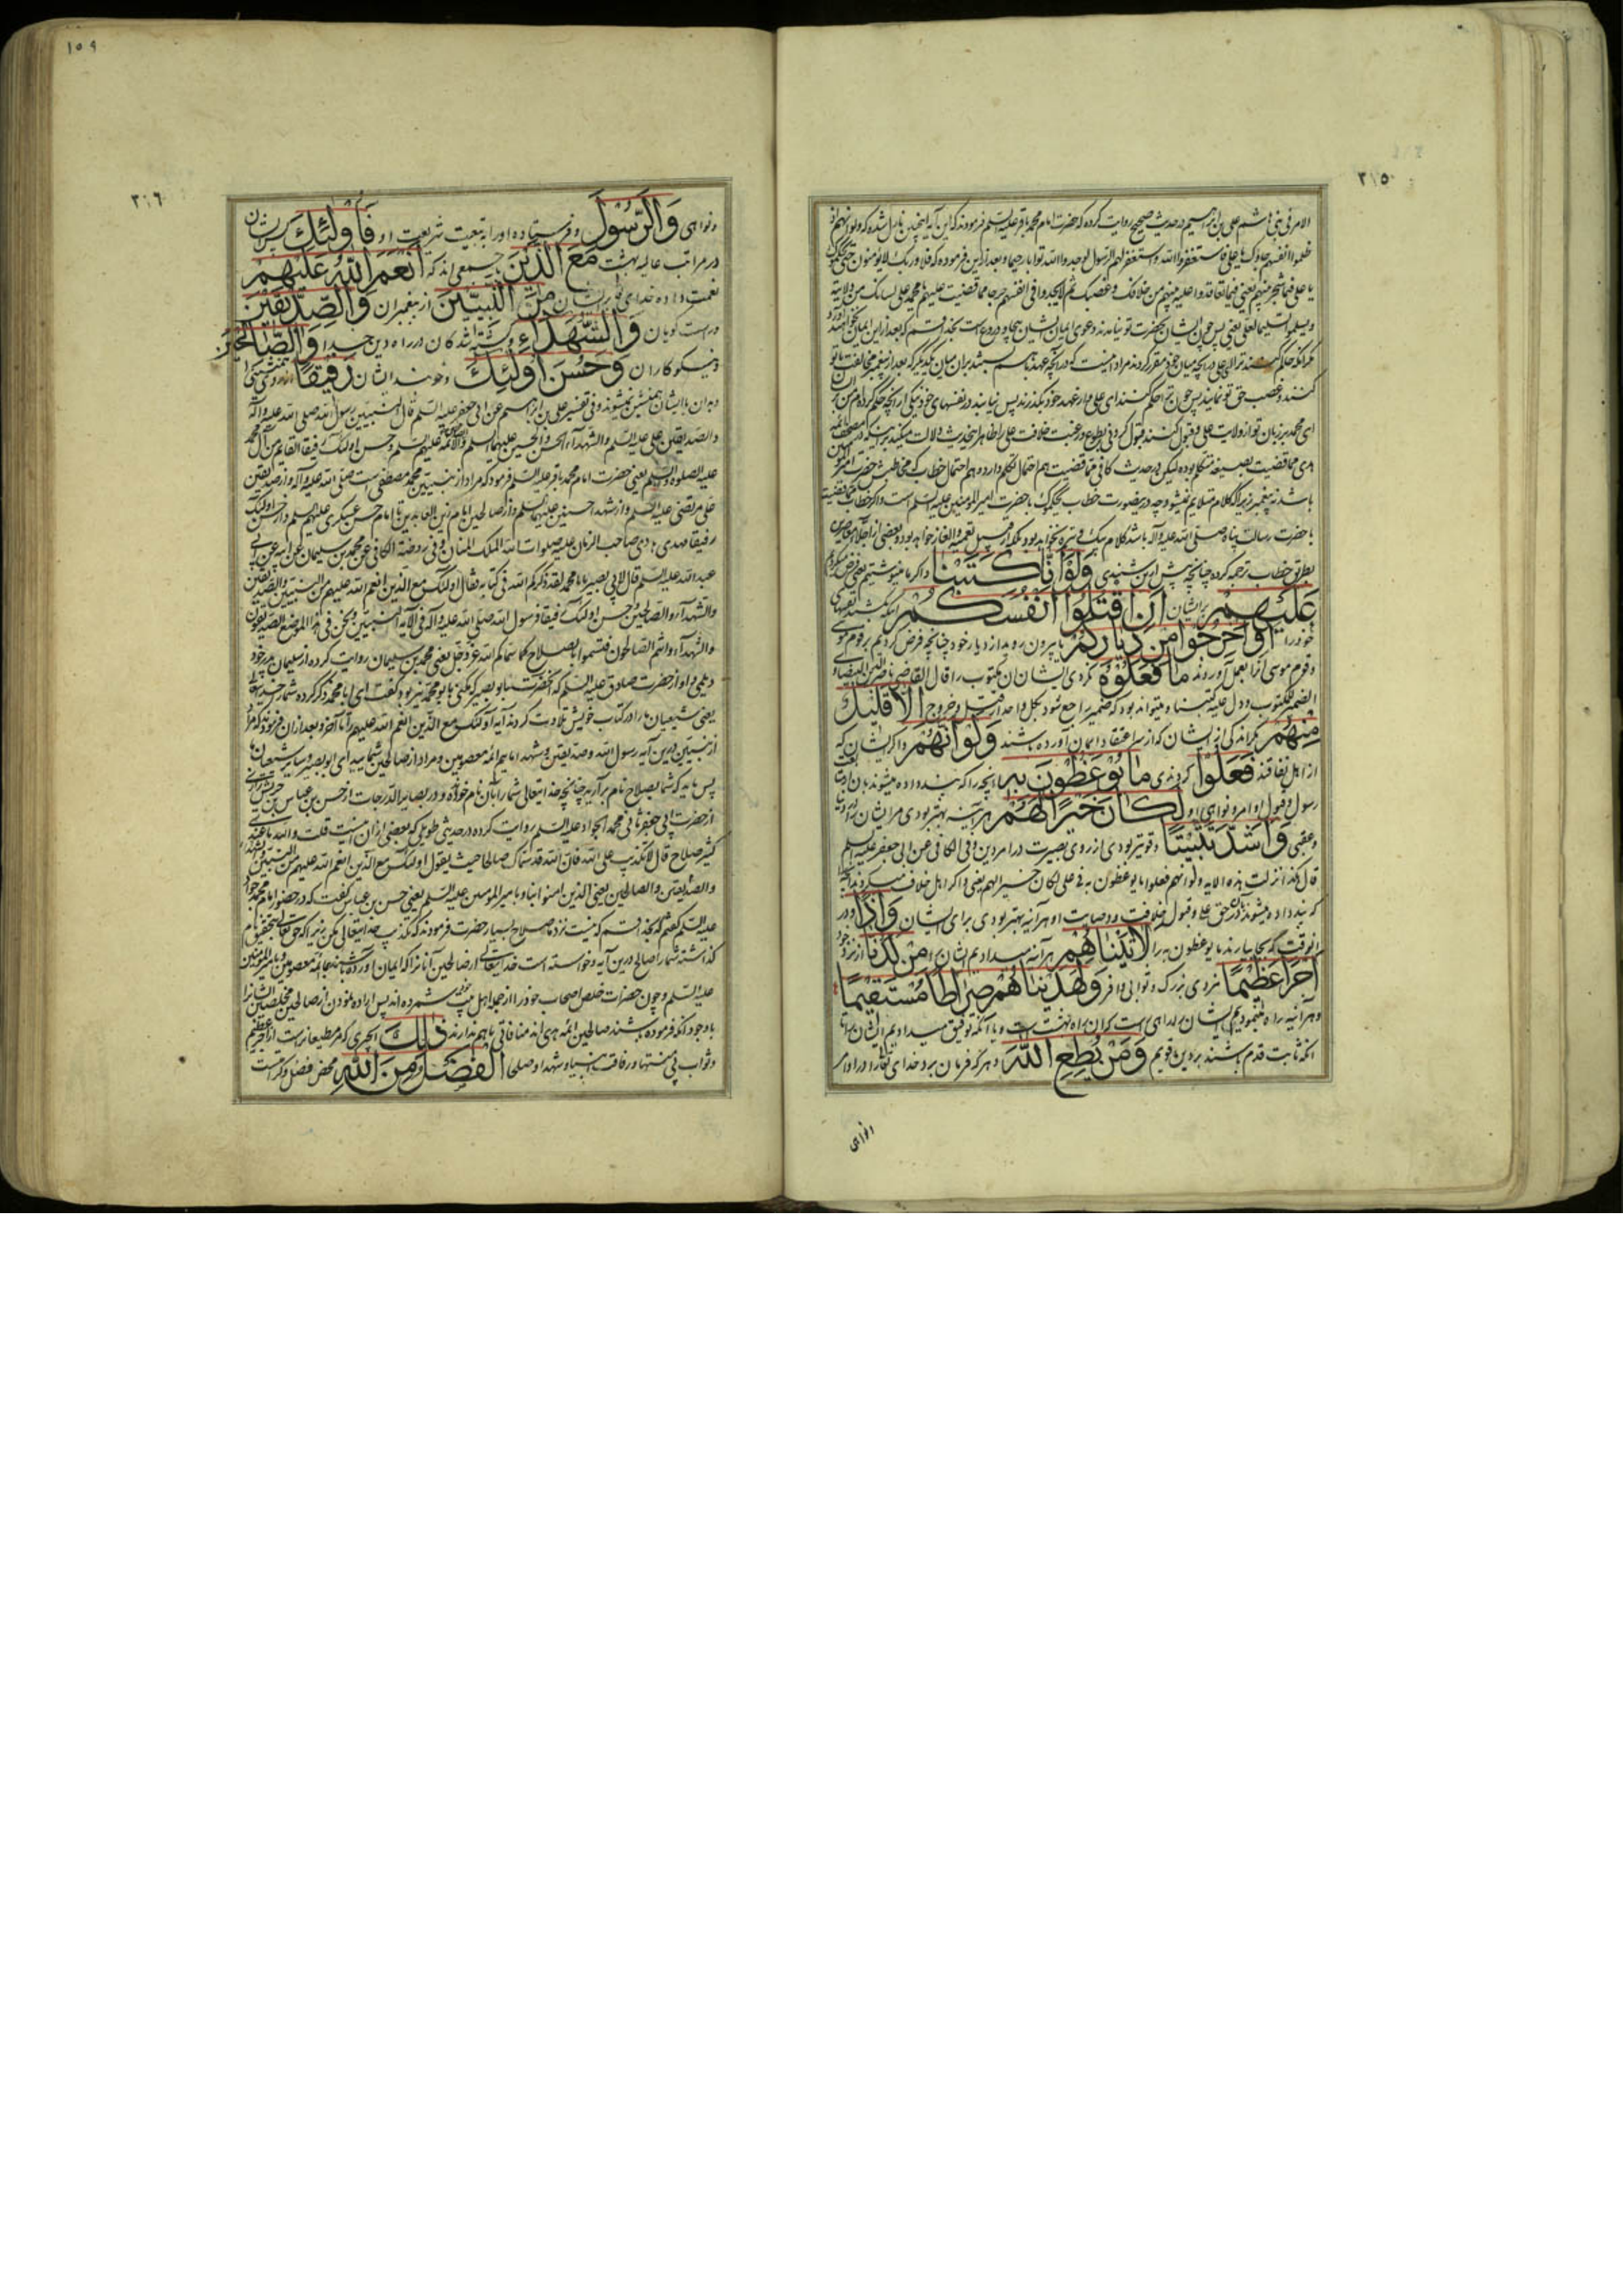 ٣١٥
الامر فی بنی هاشم علی بن ابراهیم در حدیث صحیح روایت کرده که حضرت امام محمد باقر علیه السلم فرمودند که این آیه اینچنین نازل شده که ولو انهم اذ
ظلموا انفسهم جاؤک یا علی فاستغفروا الله و استغفر لهم الرسول لوجدوا الله توابا رحیما و بعد ازین فرموده که فلا وربک لا یؤمنون حتی یحکموک
یا علی فیما شجر بینهم یعنی فیما تعاقدوا علیه بینهم من خلافک و غصبک ثم لا یجدوا فی انفسهم حرجا مما قضیت علیهم یا محمد علی لسانک من ولایته
ویسلموا تسلیما لعلی یعنی پس چون ایشان بحضرت تو نیامدند دعوی ایمان ایشان بیجا و دروغ است بخدا قسم که بعد ازین ایمان نخواهند آورد
کنند و غصب حق تو نمایند پس چون ترا حکم کنند ای علی و از عهد خود بگذرند پس نیابند در نفسهای خود تنگی از آنچه حکم کرده
ای محمد بر زبان تو از ولایت علی و قبول کنند قبول کردنی بطوع و رغبت خلافت علی را ظاهر این حدیث دلالت میکند
باشد نه پیغمبر زیرا که کلام متلایم نمیشود چه درینصورت خطاب یحکموک با حضرت امیر المؤمنین علیه السلم است و اگر خطاب قضیت
با حضرت رسالت پناه صلی الله علیه و آله باشد کلام بیک وتیره نخواهد بود بلکه از قبیل تعمیه و الغاز خواهد بود و بعضی از اجلاء معاصرین
بطریق خطاب ترجمه کرده چنانچه پیش ازین شنیدی وَلَوْ اَنَّا كَتَبْنَا و اگر ما مینوشتیم یعنی فرض میکردیم
عَلَيْهِمْ بر ایشان اَنِ اقْتُلُوا اَنْفُسَكُمْ اینکه بکشید نفسهای
خود را اَوِ اخْرُجُوا مِنْ دِيَارِكُمْ یا بیرون روید از دیار خود چنانچه فرض کردیم بر قوم موسی
و قوم موسی آنرا بعمل آوردند مَا فَعَلُوهُ نکردی ایشان آن مکتوب را قال القاضی ناصر الدین البیضاوی
الضمیر للمکتوب و دل علیه کتبنا و میتواند بود که ضمیر راجع شود بکل واحد از قتل و خروج اِلَّا قَلِيلٌ
مِنْهُمْ مگر اندکی از ایشان که از سر اعتقاد ایمان آورده باشند وَلَوْ اَنَّهُمْ و اگر ایشان که
از اهل نفاقند فَعَلُوا کردندی مَا يُوعَظُونَ بِهِ آنچه را که پند داده میشوند بآن از متابعت
رسول و قبول اوامر و نواهی او لَكَانَ خَيْرًا لَهُمْ هر آینه بهتر بودی مر ایشان را در دنیا
و عقبی وَاَشَدَّ تَثْبِيتًا و قویتر بودی از روی بصیرت در امر دین و فی الکافی عن ابی جعفر علیه السلم
قال هکذا نزلت هذه الایه ولو انهم فعلوا ما یوعظون به فی علی لکان خیرا لهم یعنی و اگر اهل خلاف میکردند آنچه را
که پند داده میشوند بآن در حق علی و قبول خلافت و وصایت او هر آینه بهتر بودی برای ایشان وَاِذًا و در
آنوقت که بجا بیارند ما یوعظون به را لَآتَيْنَاهُمْ هر آینه میدادیم ایشان را مِنْ لَدُنَّا از نزد خود
اَجْرًا عَظِيمًا مزدی بزرگ و ثوابی وافر وَلَهَدَيْنَاهُمْ صِرَاطًا مُسْتَقِيمًا
و هر آینه راه مینمودیم ایشان را براهی راست که آن راه بهشت است و یا آنکه توفیق میدادیم ایشان را تا
آنکه ثابت قدم باشند بر دین قویم وَمَنْ يُطِعِ اللهَ و هر که فرمان برد خدای تعالی را در اوامر
و نواهی
١٥٩
٣١٦
و نواهی وَالرَّسُولَ و فرستاده او را بتبعیت شریعت او فَاُولَئِكَ پس ایشان
در مراتب عالیه بهشت مَعَ الَّذِينَ با جمعی اند که اَنْعَمَ اللهُ عَلَيْهِمْ
نعمت داده خدای بر ایشان مِنَ النَّبِيِّينَ از پیغمبران وَالصِّدِّيقِينَ
و راست گویان وَالشُّهَدَاءِ و کشته شدگان در راه دین خدا وَالصَّالِحِينَ
و نیکوکاران وَحَسُنَ اُولَئِكَ و خوبند ایشان رَفِيقًا از روی همنشینی
و بدان با ایشان همنشین میشوند و فی تفسیر علی بن ابراهیم عن ابی جعفر علیه السلم قال النبیین رسول الله صلی الله علیه و آله
والصدیقین علی علیه السلم والشهداء الحسن والحسین علیهما السلم والصالحین الائمه علیهم السلم وحسن اولئک رفیقا القایم من آل محمد
علیه الصلوه والسلم یعنی حضرت امام محمد باقر علیه السلم فرمود که مراد از نبیین محمد مصطفی است صلی الله علیه و آله و از صدیقین
علی مرتضی علیه السلم و از شهدا حسنین علیهما السلم و از صالحین امام زین العابدین تا امام حسن عسکری علیهم السلم و از حسن اولئک
رفیقا مهدی هادی صاحب الزمان علیه صلوات الله الملک المنان و فی روضة الکافی عن محمد بن سلیمان عن ابیه عن ابی
عبد الله علیه السلم قال لابی بصیر یا ابا محمد لقد ذکرکم الله فی کتابه فقال اولئک مع الذین انعم الله علیهم من النبیین والصدیقین
والشهداء والصالحین وحسن اولئک رفیقا فرسول الله صلی الله علیه و آله فی الآیه النبیین ونحن فی هذا الموضع الصدیقون
والشهداء وانتم الصالحون فتسموا بالصلاح کما سماکم الله عز وجل یعنی محمد بن سلیمان روایت کرده از سلیمان پدر خود
یعنی شیعیان ما را در کتاب خویش تلاوت کردند آیه اولئک مع الذین انعم الله علیهم را تا آخر و بعد از آن فرمود که مراد
از نبیین درین آیه رسول الله و صدیقین و شهدا ما هم ائمه معصومین و مراد از صالحین شمایید ای ابو بصیر و سایر شیعیان ما
پس باید که شما بصلاح نام برآرید چنانچه خدایتعالی شما را بآن نام خوانده و در بصایر الدرجات از حسن بن عباس بن حریش رازی
از حضرت ابی جعفر ثانی محمد الجواد علیه السلم روایت کرده در حدیثی طویل که بعضی از آن اینست قلت والله ما عندی
کثیر صلاح قال لا تکذب علی الله فان الله قد سماک صالحا حیث یقول اولئک مع الذین انعم الله علیهم من النبیین
والصدیقین والشهداء والصالحین یعنی الذین امنوا بنا و بامیر المؤمنین علیه السلم یعنی حسن بن عباس گفت که در حضور امام محمد جواد
علیه السلم گفتم که بخدا قسم که نیست نزد ما صلاح بسیار حضرت فرمودند که تکذیب خدایتعالی مکن زیرا که حق تعالی بتحقیق نام
گذاشته شما را صالح درین آیه و خواسته است خدایتعالی از صالحین آنانرا که ایمان آورده باشند بما ائمه معصومین و بامیر المؤمنین
علیه السلم و چون حضرات خلص اصحاب خود را از جمله اهل بیت خود شمرده اند پس اراده نمودن از صالحین مخلصین ایشانرا
با وجود آنکه فرموده باشند صالحین ائمه هدی اند منافاتی با هم ندارند ذَلِكَ اجری که مر مطیعانراست از اجر عظیم
و ثواب بی منتها و رفاقت انبیا و شهدا و صلحا الْفَضْلُ مِنَ اللهِ محض فضل و کرم است